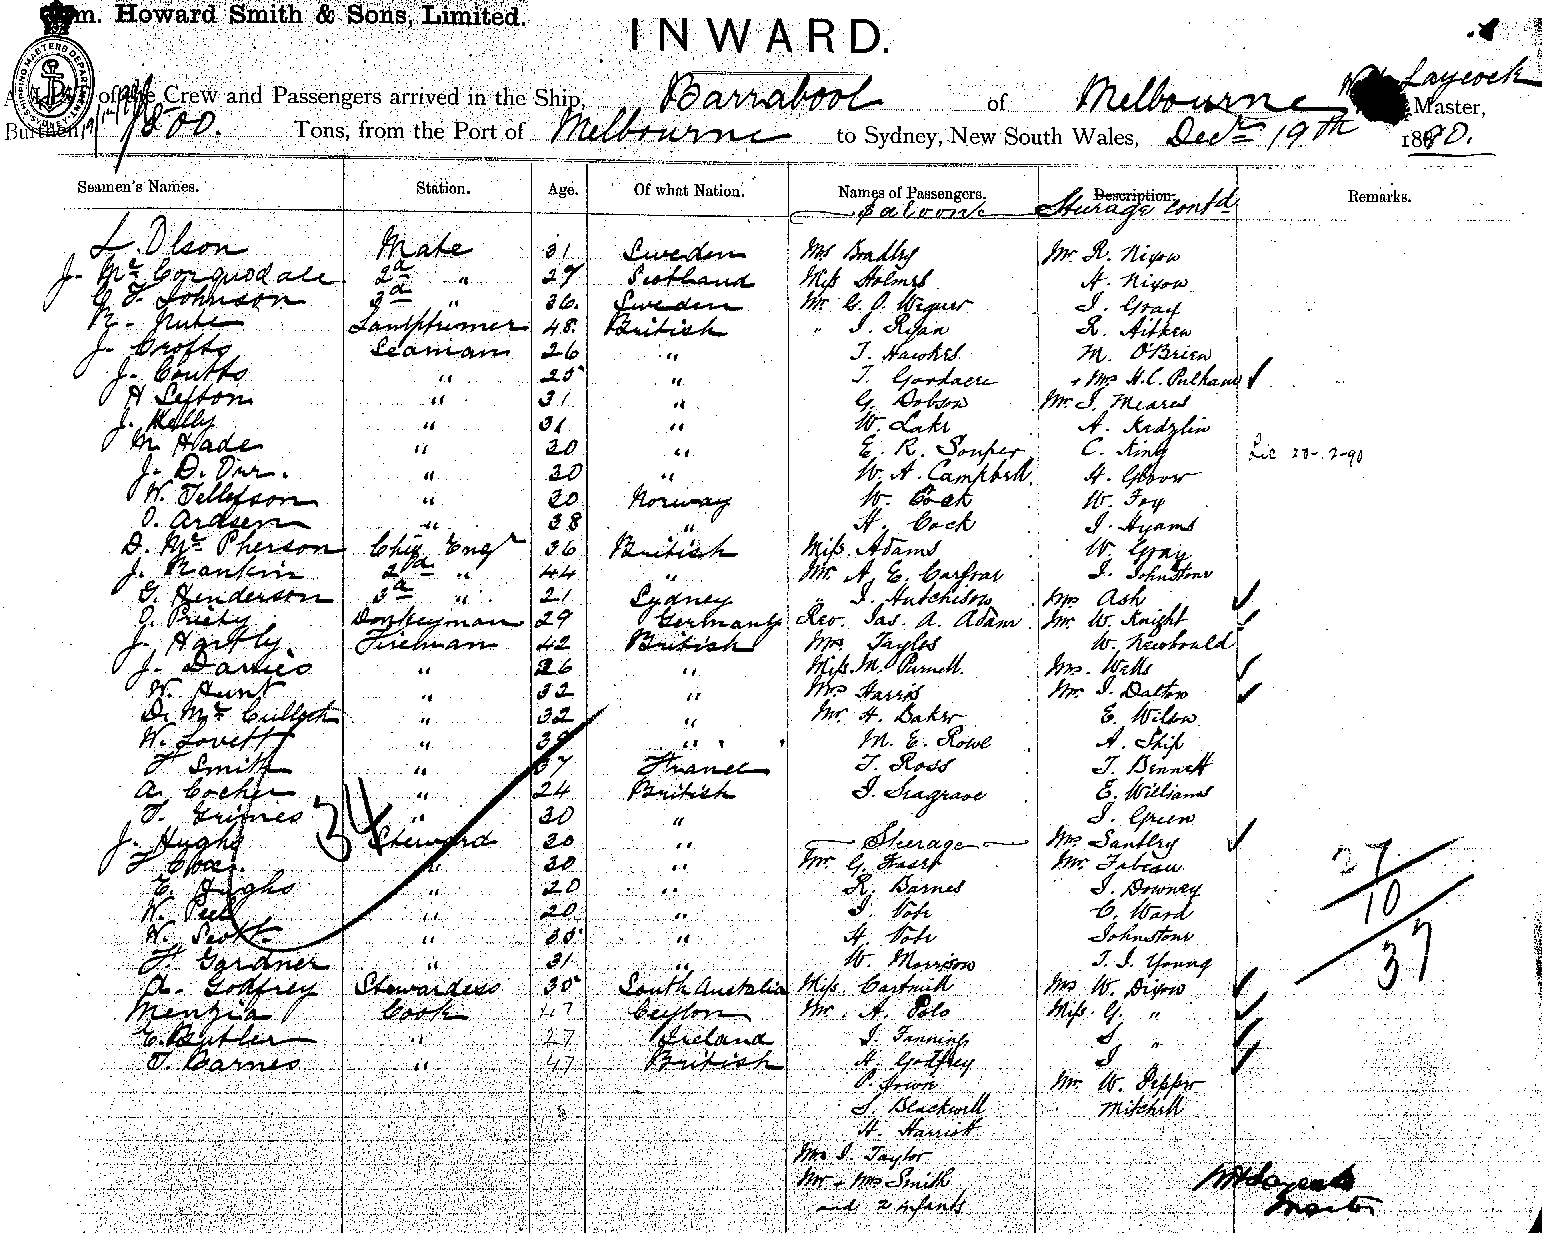 Wm. Howard Smith & Sons, Limited.
INWARD.
of the Crew and Passengers arrived in the Ship, Barrabool of Melbourne Laycock Master,
Burthen, 1800. Tons, from the Port of Melbourne to Sydney, New South Wales, Decr 19th 1890.
Seamen's Names. Station. Age. Of what Nation. Names of Passengers. Description. Remarks.
Saloon Steerage contd
L. Olson Mate 31 Sweden Mrs Bradley Mr R. Nixon
J. McCorquodale 2d " 27 Scotland Miss Holmes H. Nixon
G. F. Johnson 3d " 36 Sweden Mr C. O. Wegner J. Gray
R. Nute Lamptrimer 48 British " J. Ryan R. Aitken
J. Crofts Seaman 26 " T. Hawkes M. O'Brien
J. Coutts " 25 " T. Goodacre + Mrs H.C. Pulham
H Sefton " 31 " G. Dobson Mr J. Meares
J. Kelly " 31 " W. Lake A.
Hade " 30 " E. R. Souper C. King Lic 20-2-90
J. D. Orr. " 30 " W. A. Campbell H. Glover
W. Tellefson " 30 Norway W. Cock W. Foy
O. Ardsen " 38 " H. Cock J. Hyams
D. McPherson Chief Engr 36 British Miss Adams W. Gray
J. Rankin 2d " 44 " Mr A. E. J. Johnstone
G. Henderson 3d " 21 Sydney " J. Hutchison Mrs Ash
Donkeyman 29 Germany Rev. Jas. A. Adam Mr W. Knight
J. Hartly Fireman 42 British Mrs Taylor W. Newbould
J. Davies " 26 " Miss M. Purnell Mrs. Watts
W. Hunt " 32 " Mrs Harris Mr J. Dalton
D. McCulloch " 32 " Mr H. Baker E. Wilson
W. Lovett " 39 " M. E. Rowe A. Skip
F Smith " 37 France T. Ross T. Bennett
A. Cocker " 24 British J. Seagrave E. Williams
F. Grimes " 30 " J. Green
34
J. Hughs Steward 30 " Steerage Mrs Santley
F Cox " 30 " Mr G. Fraser Mr Fabeau
E. Hughs " 20 " R. Barnes J. Downey
W. Peel " 20 " J. Vote C. Ward
H. Scott " 35 " H. Vote Johnstone
F. Gardner " 31 " W. Morrison T. J. Young
A. Godfrey Stewardess 35 South Australia Miss Cartmill Mrs W. Dixon
Menzia Cook 47 Ceylon Mr. A. Polo Miss G. "
E. Butler " 27 Ireland J. Fanning S "
T. Barnes " 47 British H. Godfrey J "
P. Mr. W. Pepper
S. Blackwell Mitchell
H. Harriott
Mrs J. Taylor
Mr + Mrs Smith
and 2 infants
27
10
37
Master